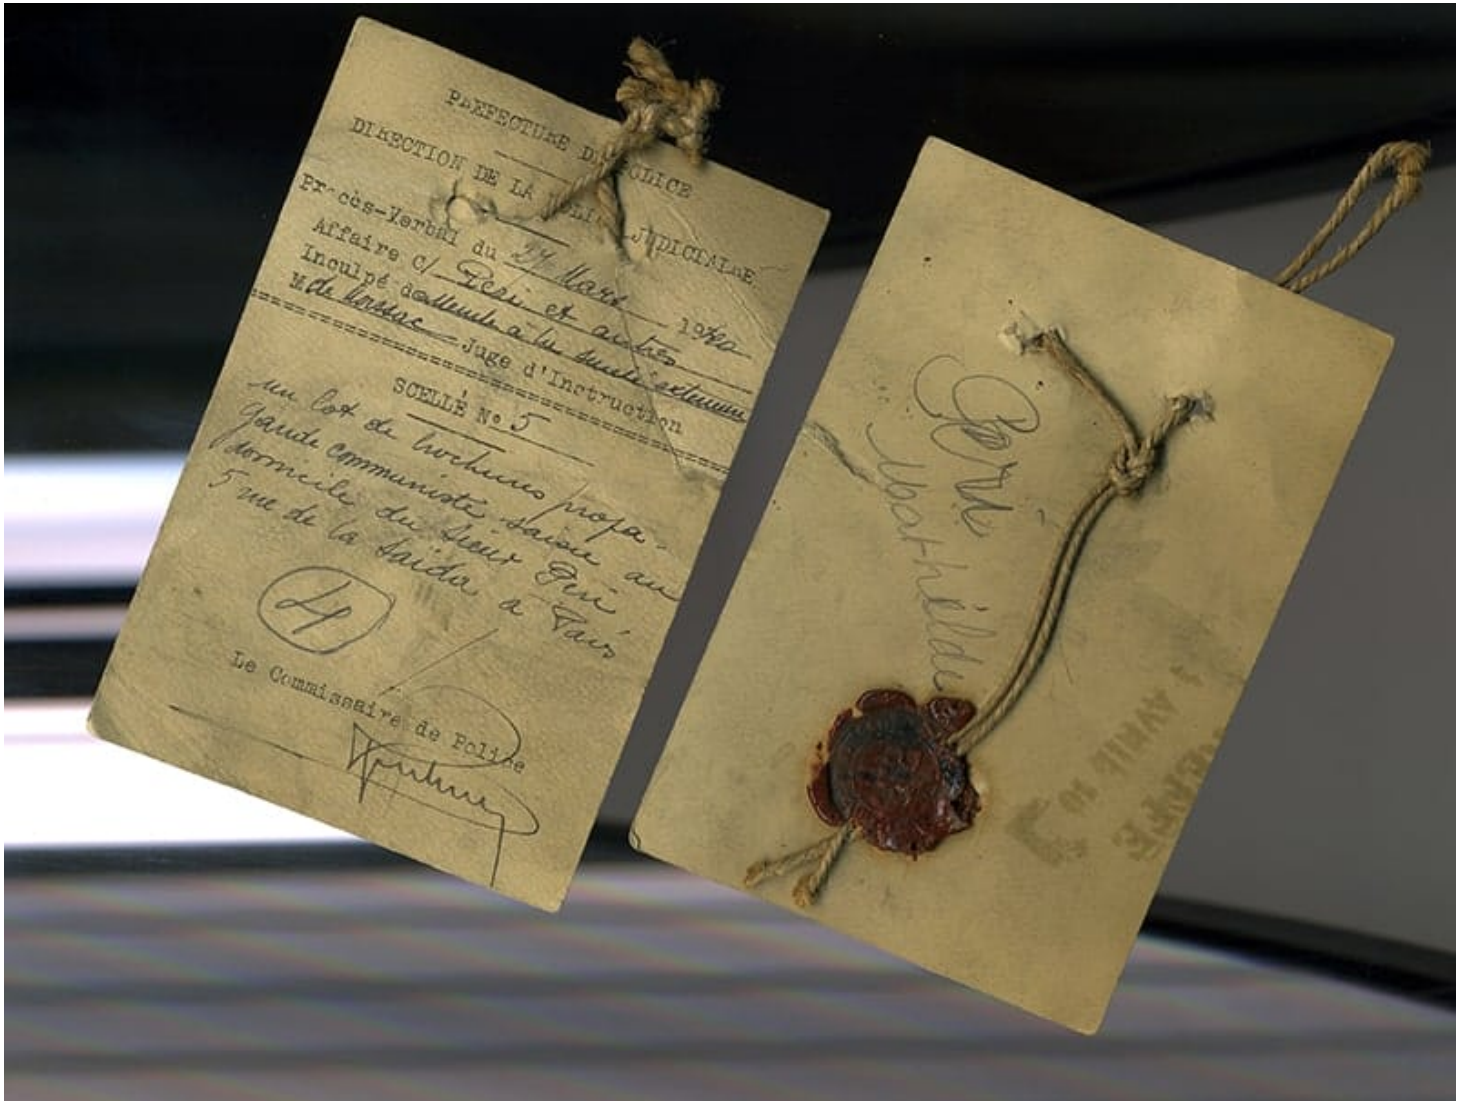 PREFECTURE DE POLICE
DIRECTION DE LA POLICE JUDICIAIRE
Procès-Verbal du 27 Mars 1940
Affaire C/ Péri et autres
Inculpé de atteinte à la sureté extérieure
M de Moissac Juge d'Instruction
SCELLÉ No 5
un lot de brochures propa-
gande communiste saisie au
domicile du Sieur Péri
5 rue de la Saïda à Paris
4
Le Commissaire de Police
Péri
Mathilde